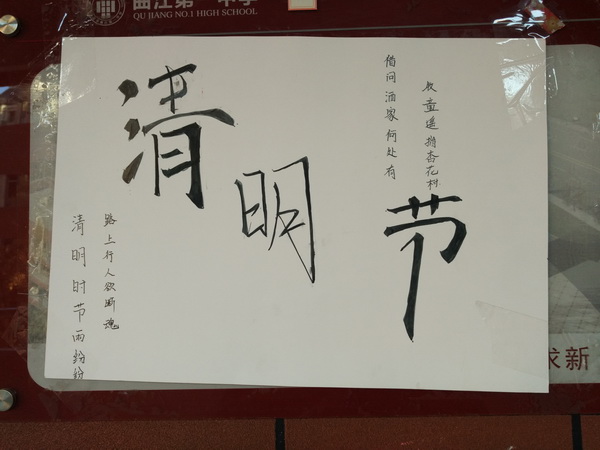 曲江第一中学
QU JIANG NO.1 HIGH SCHOOL
清明节
清明时节雨纷纷
路上行人欲断魂
借问酒家何处有
牧童遥指杏花村
求新